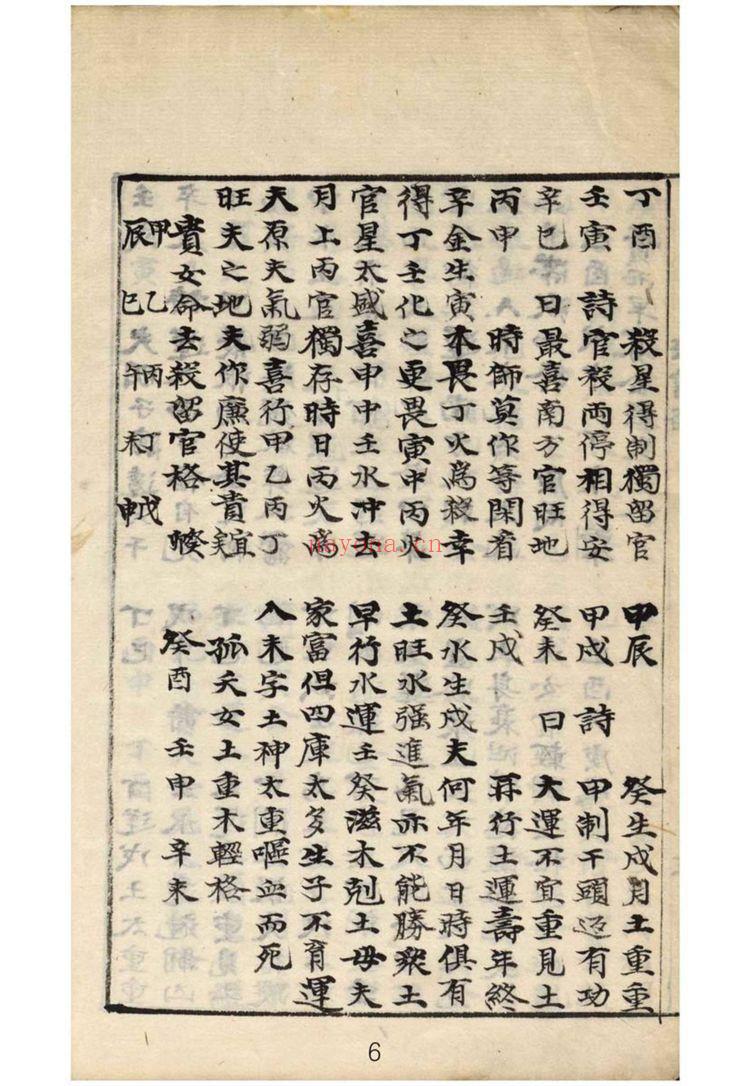 丁酉 殺星得制獨留官
壬寅 詩 官殺两停相得安
辛巳 曰 最喜南方官旺地
丙申 時師莫作等閑看
辛金生寅本畏丁火為殺幸
得丁壬化之更畏寅中丙火
官星太盛喜申中壬水沖去
月上丙官獨存時日丙火為
夫原夫氣弱喜行甲乙丙丁
旺夫之地夫作廉使其貴宜
貴女命去殺留官格 癸卯
甲辰 乙巳 丙午 丁未 戊申
甲辰 癸生戌月土重重
甲戌 詩 甲制干頭迥有功
癸未 曰 大運不宜重見土
壬戌 再行土運壽年終
癸水生戌夫何年月日時俱有
土旺水強進氣亦不能勝衆土
早行水運壬癸滋木剋土母夫
家富但四庫太多生子不育運
入未字土神太重嘔血而死
孤夭女土重木輕格
癸酉 壬申 辛未
6